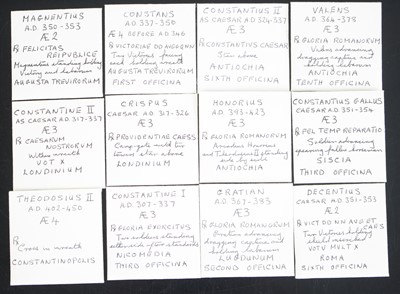 MAGNENTIUS
A.D. 350-353
Æ2
℞ FELICITAS
REIPVBLICE
Magnentius standing holding
Victory and labarum
AUGUSTA TREVIRORUM
CONSTANS
A.D. 337-350
Æ4 BEFORE AD 346
℞ VICTORIAE DD NN AVGG Q NN
Two Victories facing
and holding wreath
AUGUSTA TREVIRORUM
FIRST OFFICINA
CONSTANTIUS II
AS CAESAR AD 324-337
Æ3
℞ CONSTANTIVS CAESAR
ANTIOCHIA
SIXTH OFFICINA
VALENS
A.D. 364-378
Æ3
℞ GLORIA ROMANORVM
Valens advancing
dragging captive and
holding labarum
ANTIOCHIA
TENTH OFFICINA
CONSTANTINE II
AS CAESAR AD 317-337
Æ3
℞ CAESARVM
NOSTRORVM
Within wreath
VOT X
LONDINIUM
CRISPUS
CAESAR A.D. 317-326
Æ3
℞ PROVIDENTIAE CAESS
Camp-gate with two
turrets star above
LONDINIUM
HONORIUS
A.D. 393-423
Æ3
℞ GLORIA ROMANORVM
Arcadius Honorius
and Theodosius II standing
side by side
ANTIOCHIA
CONSTANTIUS GALLUS
CAESAR A.D. 351-354
Æ3
℞ FEL TEMP REPARATIO
Soldier advancing
spearing fallen horseman
SISCIA
THIRD OFFICINA
THEODOSIUS II
A.D. 402-450
Æ4
℞
Cross in wreath
CONSTANTINOPOLIS
CONSTANTINE I
A.D. 307-337
Æ3
℞ GLORIA EXERCITVS
Two soldiers standing
either side of two standards
NICOMEDIA
THIRD OFFICINA
GRATIAN
A.D. 367-383
Æ3
℞ GLORIA ROMANORVM
Gratian advancing
dragging captive and
holding labarum
LUGDUNUM
SECOND OFFICINA
DECENTIUS
CAESAR A.D. 351-353
Æ2
℞ VICT DD NN AVG ET CAES
Two Victories holding
shield inscribed
VOTV MVLT X
ROMA
SIXTH OFFICINA